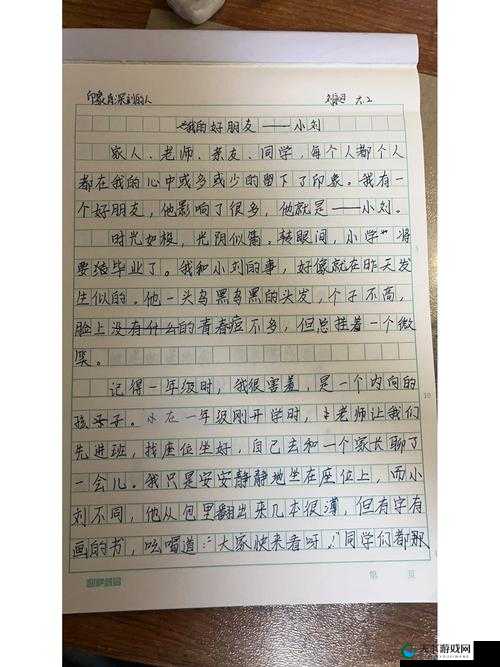 印象最深刻的人 六2
我的好朋友——小刘
家人、老师、亲友、同学,每个人都个人
都在我的心中或多或少的留下了印象。我有一
个好朋友,他影响了很多,他就是——小刘。
时光如梭,光阴似箭。转眼间,小学"将
要结毕业了。我和小刘的事,好像就在昨天发
生似的。他一头乌黑乌黑的头发,个子不高,
脸上没有什么的青春痘不多,但总挂着一个微
笑。
记得一年级时,我很害羞,是一个内向的
孩子。一年级刚开学时,老师让我们
先进班,找座位坐好,自己去和一个家长聊了
一会儿。我只是安安静静地坐在座位上,而小
刘不同,他从包里翻出来几本很薄,但有字有
画的书,吆喝道:"大家快来看呀!"同学们都那
第 页
天下游戏网